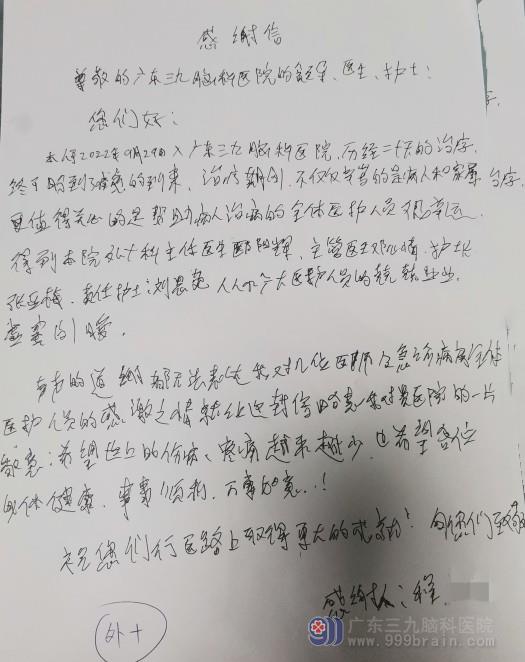 感谢信
尊敬的广东三九脑科医院的领导、医生、护士：
您们好：
本人于2022年9月29日入广东三九脑科医院，历经二十天的治疗，
终于盼到了痊愈的到来，治疗期间，不仅仅辛苦的是病人和家属，
更值得关心的是帮助病人治病的全体医护人员 很幸运
得到本院外十科主任医生欧阳辉，主管医生邓 护士长
张 责任护士：刘 广大医护人员的兢兢业业，
有声的道谢都无法表达我对几位医师及 病房全体
医护人员的感激之情 就让这封信 对贵医院的一片
敬意：希望世上的伤病、疼痛越来越少，也希望各位
身体健康，事事顺利，万事如意..！
祝您们行医路上取得更大的成功！向您们致敬
感谢人：程
外十
广东三九脑科医院
www.999brain.com